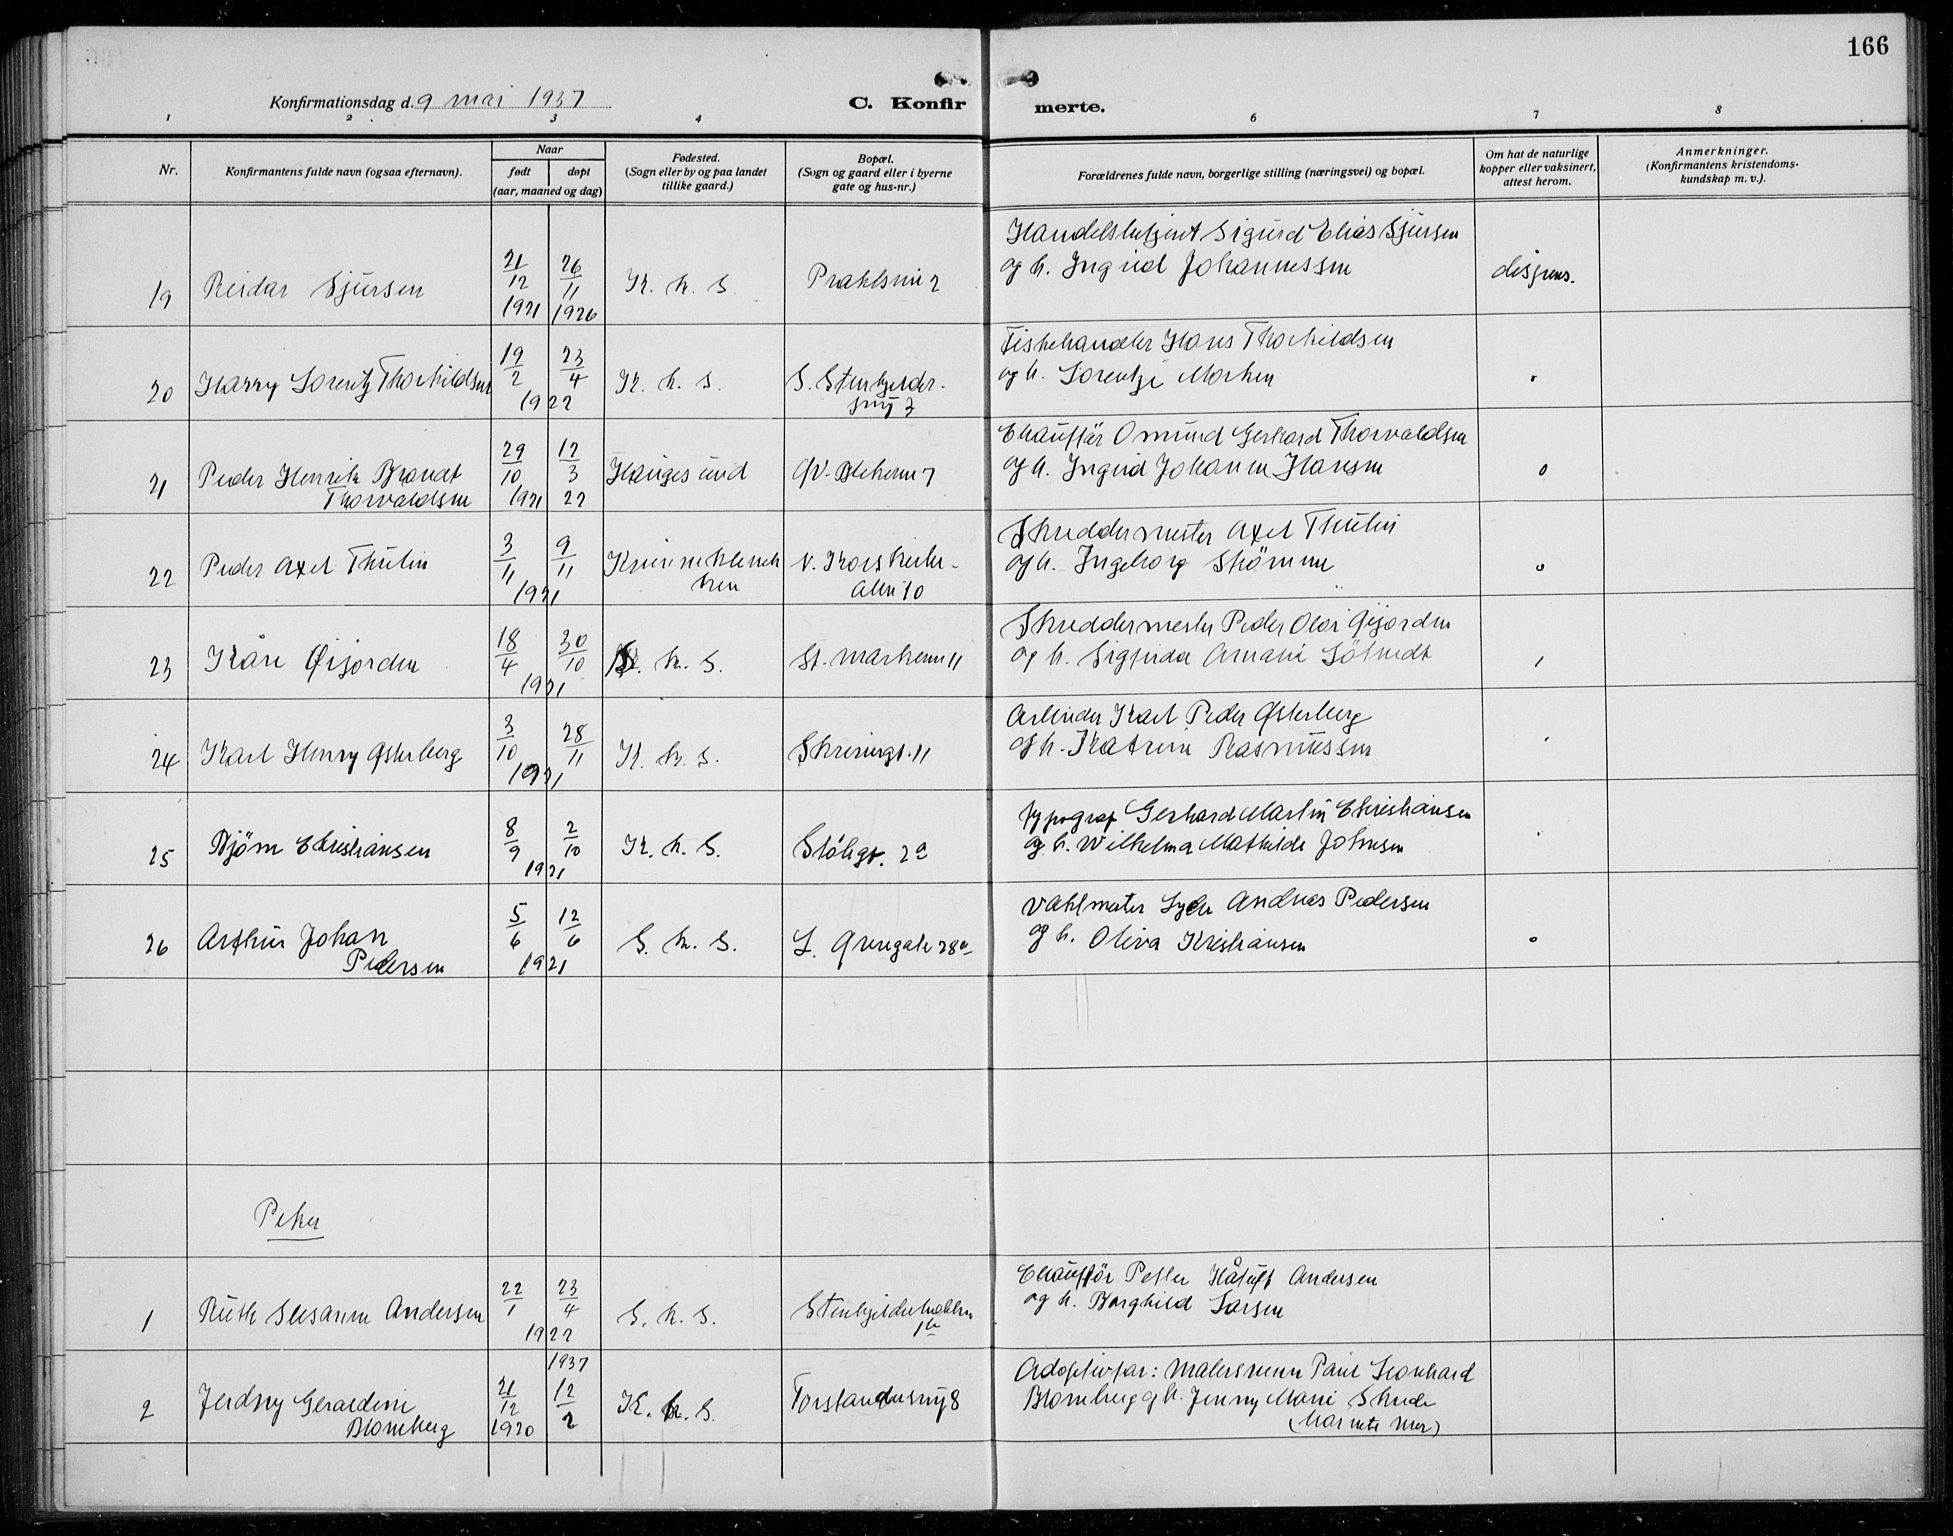 166
Konfirmationsdag d. 9 mai 1937
C. Konfirmerte.
1 2 3 4 6 7 8
Nr.
Konfirmantens fulde navn (ogsaa efternavn).
Naar
født døpt
(aar, maaned og dag)
Fødested.
(Sogn eller by og paa landet
tillike gaard.)
Bopæl.
(Sogn og gaard eller i byerne
gate og hus-nr.)
Forældrenes fulde navn, borgerlige stilling (næringsvei) og bopæl.
Om hat de naturlige
kopper eller vaksinert,
attest herom.
Anmerkninger.
(Konfirmantens kristendoms-
kundskap m. v.).
19 Reidar Sjursen 21/12 1921 26/11 1926 K. k. S. 2
Sigurd Elias Sjursen
og h. Ingrid Johannessen
dispens.
20 Harry Lorentz Thorkildsen 19/2 23/4 1922 K. k. S. S. Stenkjelder-
smg 7
Fiskehandler Hans Thorkildsen
og h. Lorentze Morken
21 Peder Henrik Brandt
Thorvaldsen
29/10 1921 12/3 22 Haugesund Blekeven 7
Chauffør Omund Gerhard Thorvaldsen
og h. Ingrid Johanne Hansen
22 Peder Axel Thulin 3/11 9/11 1921 Kvinneklinik
ken
N. Korskirke-
alm 10
Skreddermester Axel Thulin
og h. Ingeborg Strømme
23 Kåre Øijorden 18/4 30/10 1921 k. S. St. Markevei 11
Skreddermester Peder Olai Øijorden
og h. Sigfrida Amalie
24 Karl Henry Østerberg 3/10 28/11 1921 K. k. S. Strømgt. 11
Arbeider Karl Peder Østerberg
og h. Katrine Rasmussen
25 Bjørn Christiansen 8/9 2/10 1921 K. k. S. Stølegt. 2a
Typograf Gerhard Martin Christiansen
og h. Wilhelma Mathilde Johnsen
26 Arthur Johan
Pedersen
5/6 12/6 1921 S. k. S. L. Øvregate 28a
Vaktmester Andreas Pedersen
og h. Oliva Kristiansen
Piker
1 Ruth Susanne Andersen 22/1 23/4 1922 S. k. S. Stenkjelderbakken
Chauffør Petter Andersen
og h. Borghild Larsen
2 Gerardine
Blomberg
21/12 1920 1937 12/2 K. k. S. Forstandersmg 8
Adoptivfar: Malersvenn Paul Leonhard
Blomberg og h. Jenny Marie